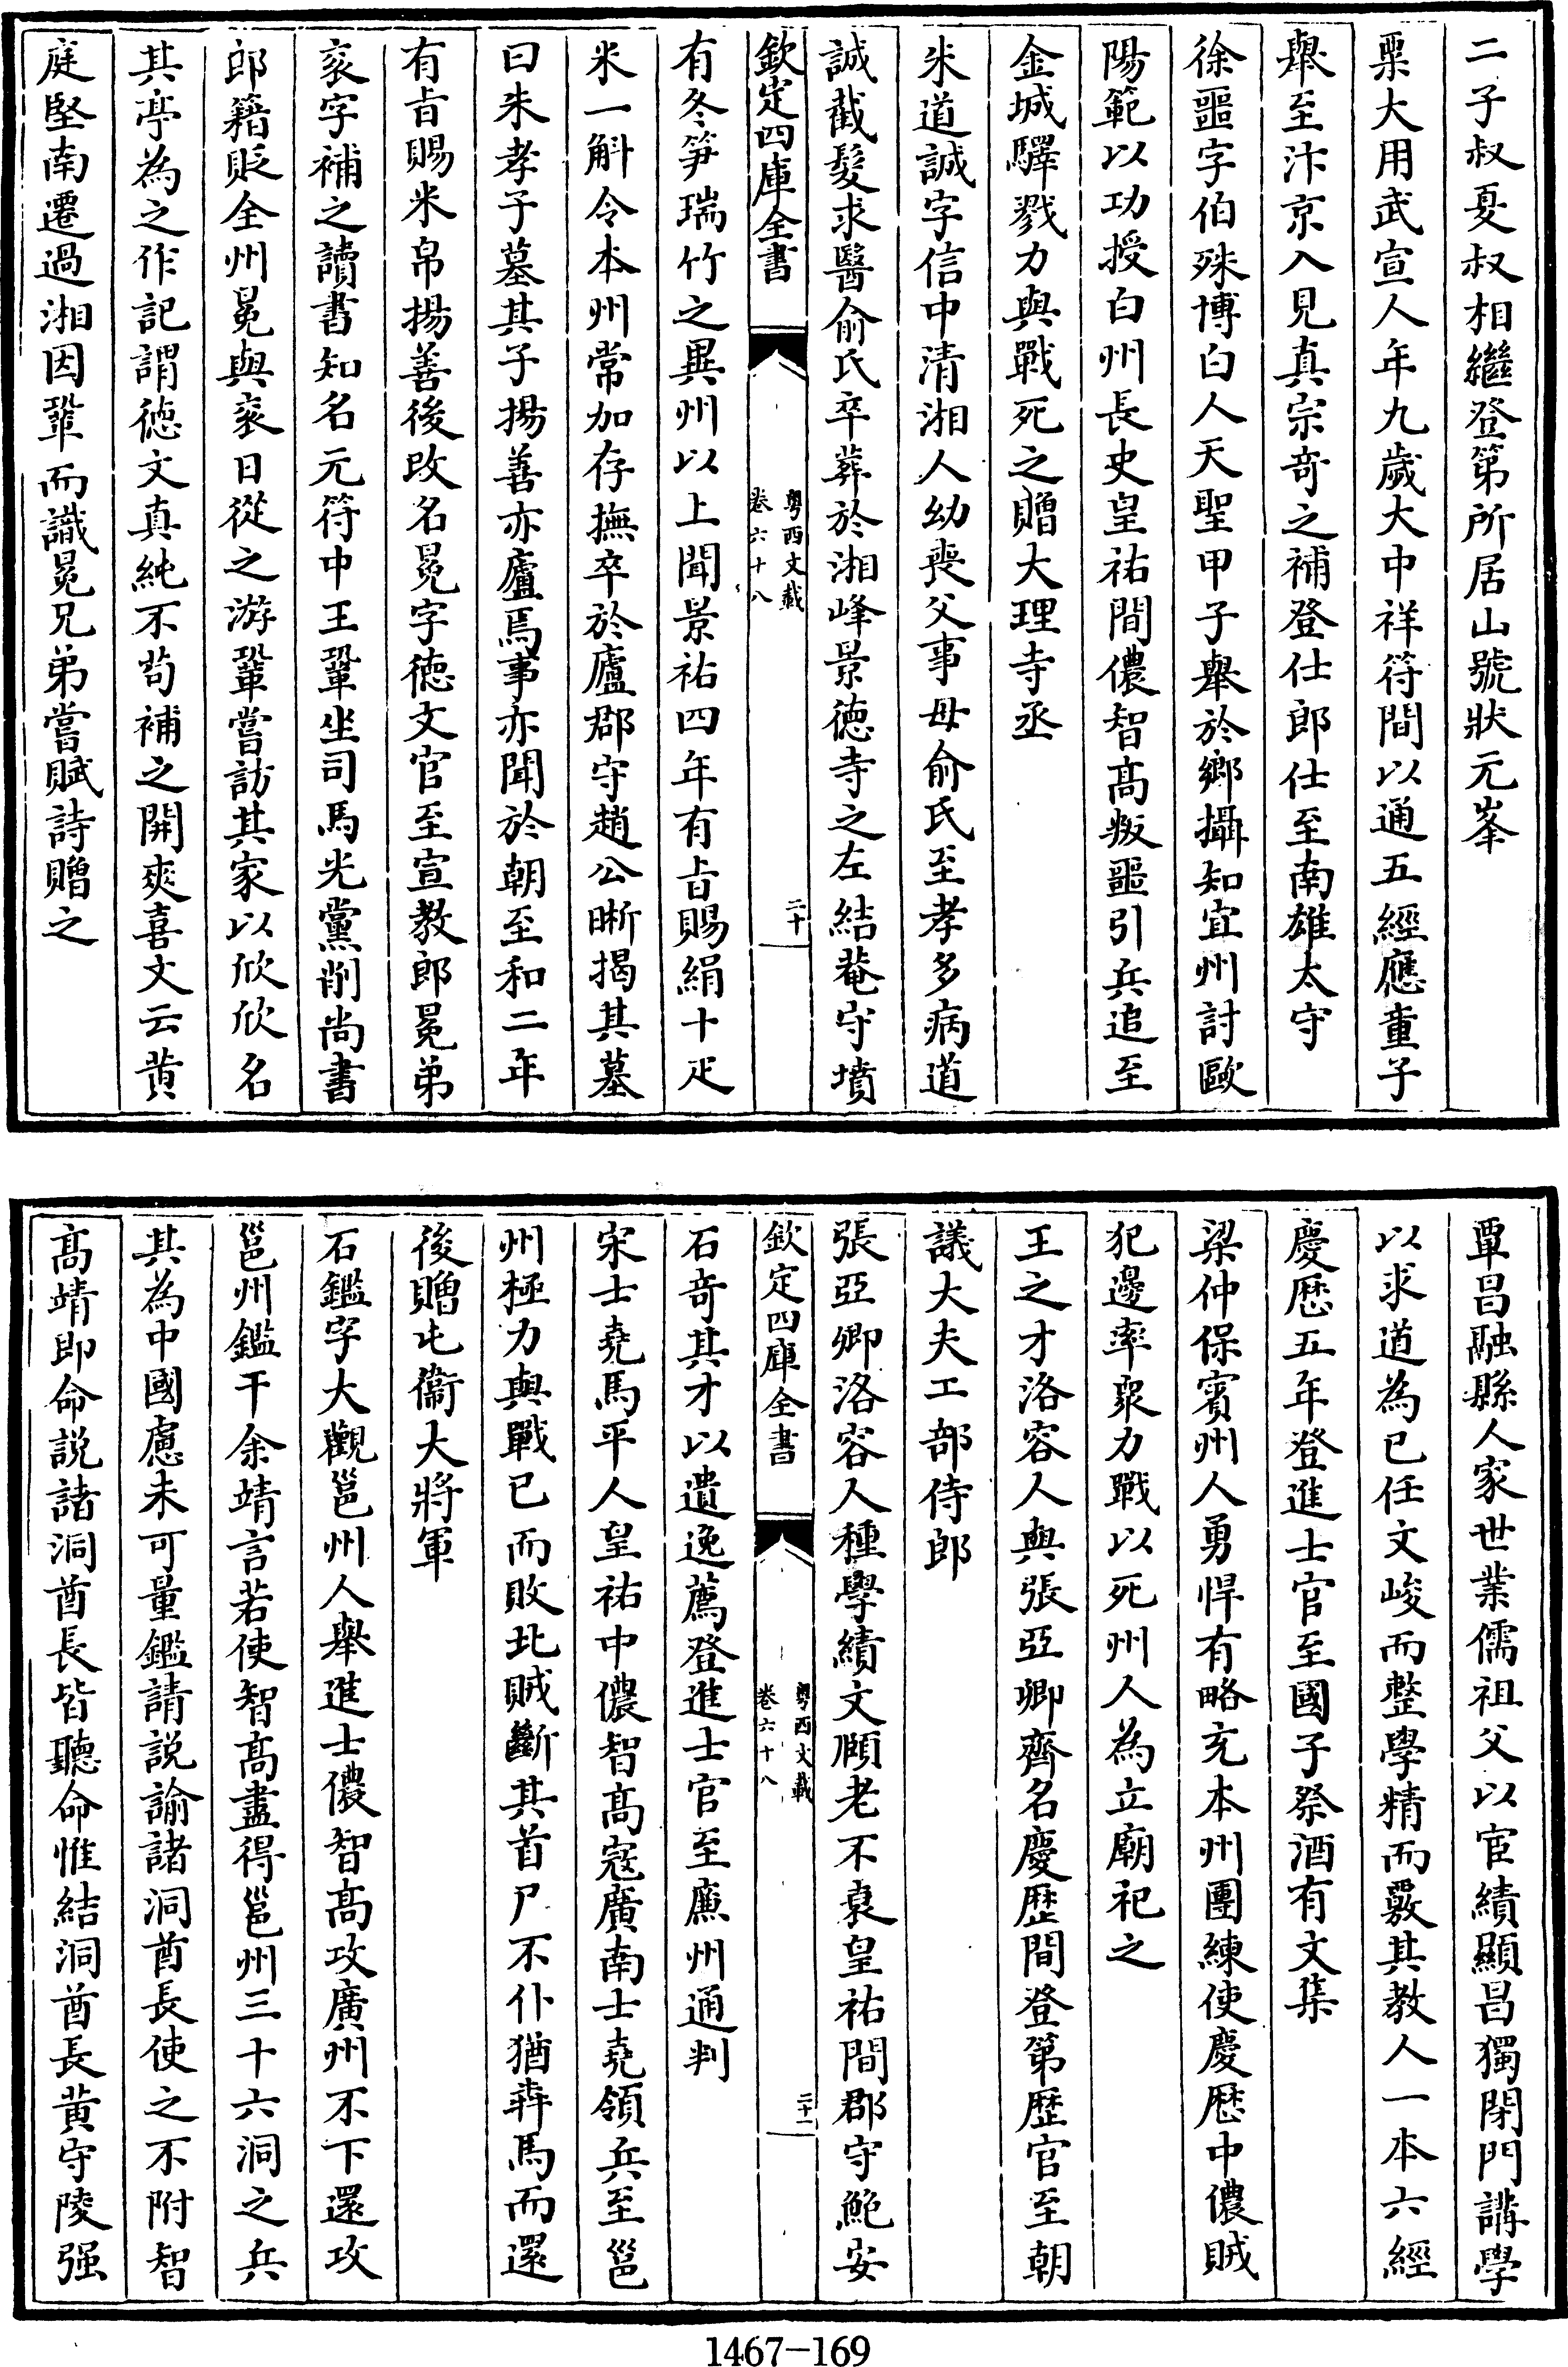 二子叔夏叔相繼登第所居山號狀元峯
栗大用武宣人年九歲大中祥符間以通五經應童子
舉至汴京入見真宗奇之補登仕郎仕至南雄太守
徐噩字伯殊博白人天聖甲子舉於鄉攝知宜州討歐
陽範以功授白州長史皇祐間儂智髙叛噩引兵追至
金城驛戮力與戰死之贈大理寺丞
朱道誠字信中清湘人幼喪父事母俞氏至孝多病道
誠截髮求醫俞氏卒葬於湘峰景徳寺之左結菴守墳
欽定四庫全書
粤西文載
卷六十八
二十
有冬笋瑞竹之異州以上聞景祐四年有㫖賜絹十疋
米一斛令本州常加存撫卒於廬郡守趙公晣揭其墓
曰朱孝子墓其子揚善亦廬焉事亦聞於朝至和二年
有㫖賜米帛揚善後改名冕字徳文官至宣教郎冕弟
衮字補之讀書知名元符中王鞏坐司馬光黨削尚書
郎籍貶全州冕與衮日從之游鞏嘗訪其家以欣欣名
其亭為之作記謂徳文真純不茍補之開爽喜文云黄
庭堅南遷過湘因鞏而識冕兄弟嘗賦詩贈之
覃昌融縣人家世業儒祖父以宦績顯昌獨閉門講學
以求道為己任文峻而整學精而覈其教人一本六經
慶厯五年登進士官至國子祭酒有文集
梁仲保賓州人勇悍有略充本州團練使慶厯中儂賊
犯邊率衆力戰以死州人為立廟祀之
王之才洛容人與張亞卿齊名慶歴間登第歴官至朝
議大夫工部侍郎
張亞卿洛容人種學績文頤老不衰皇祐間郡守鮑安
欽定四庫全書
粤西文載
卷六十八
二十一
石奇其才以遺逸薦登進士官至亷州通判
宋士堯馬平人皇祐中儂智髙寇廣南士堯領兵至邕
州極力與戰已而敗北賊斷其首尸不仆猶犇馬而還
後贈屯衞大將軍
石鑑字大觀邕州人舉進士儂智髙攻廣州不下還攻
邕州鑑干余靖言若使智髙盡得邕州三十六洞之兵
其為中國慮未可量鑑請説諭諸洞酋長使之不附智
髙靖即命説諸洞酋長皆聽命惟結洞酋長黄守陵强
1467-169